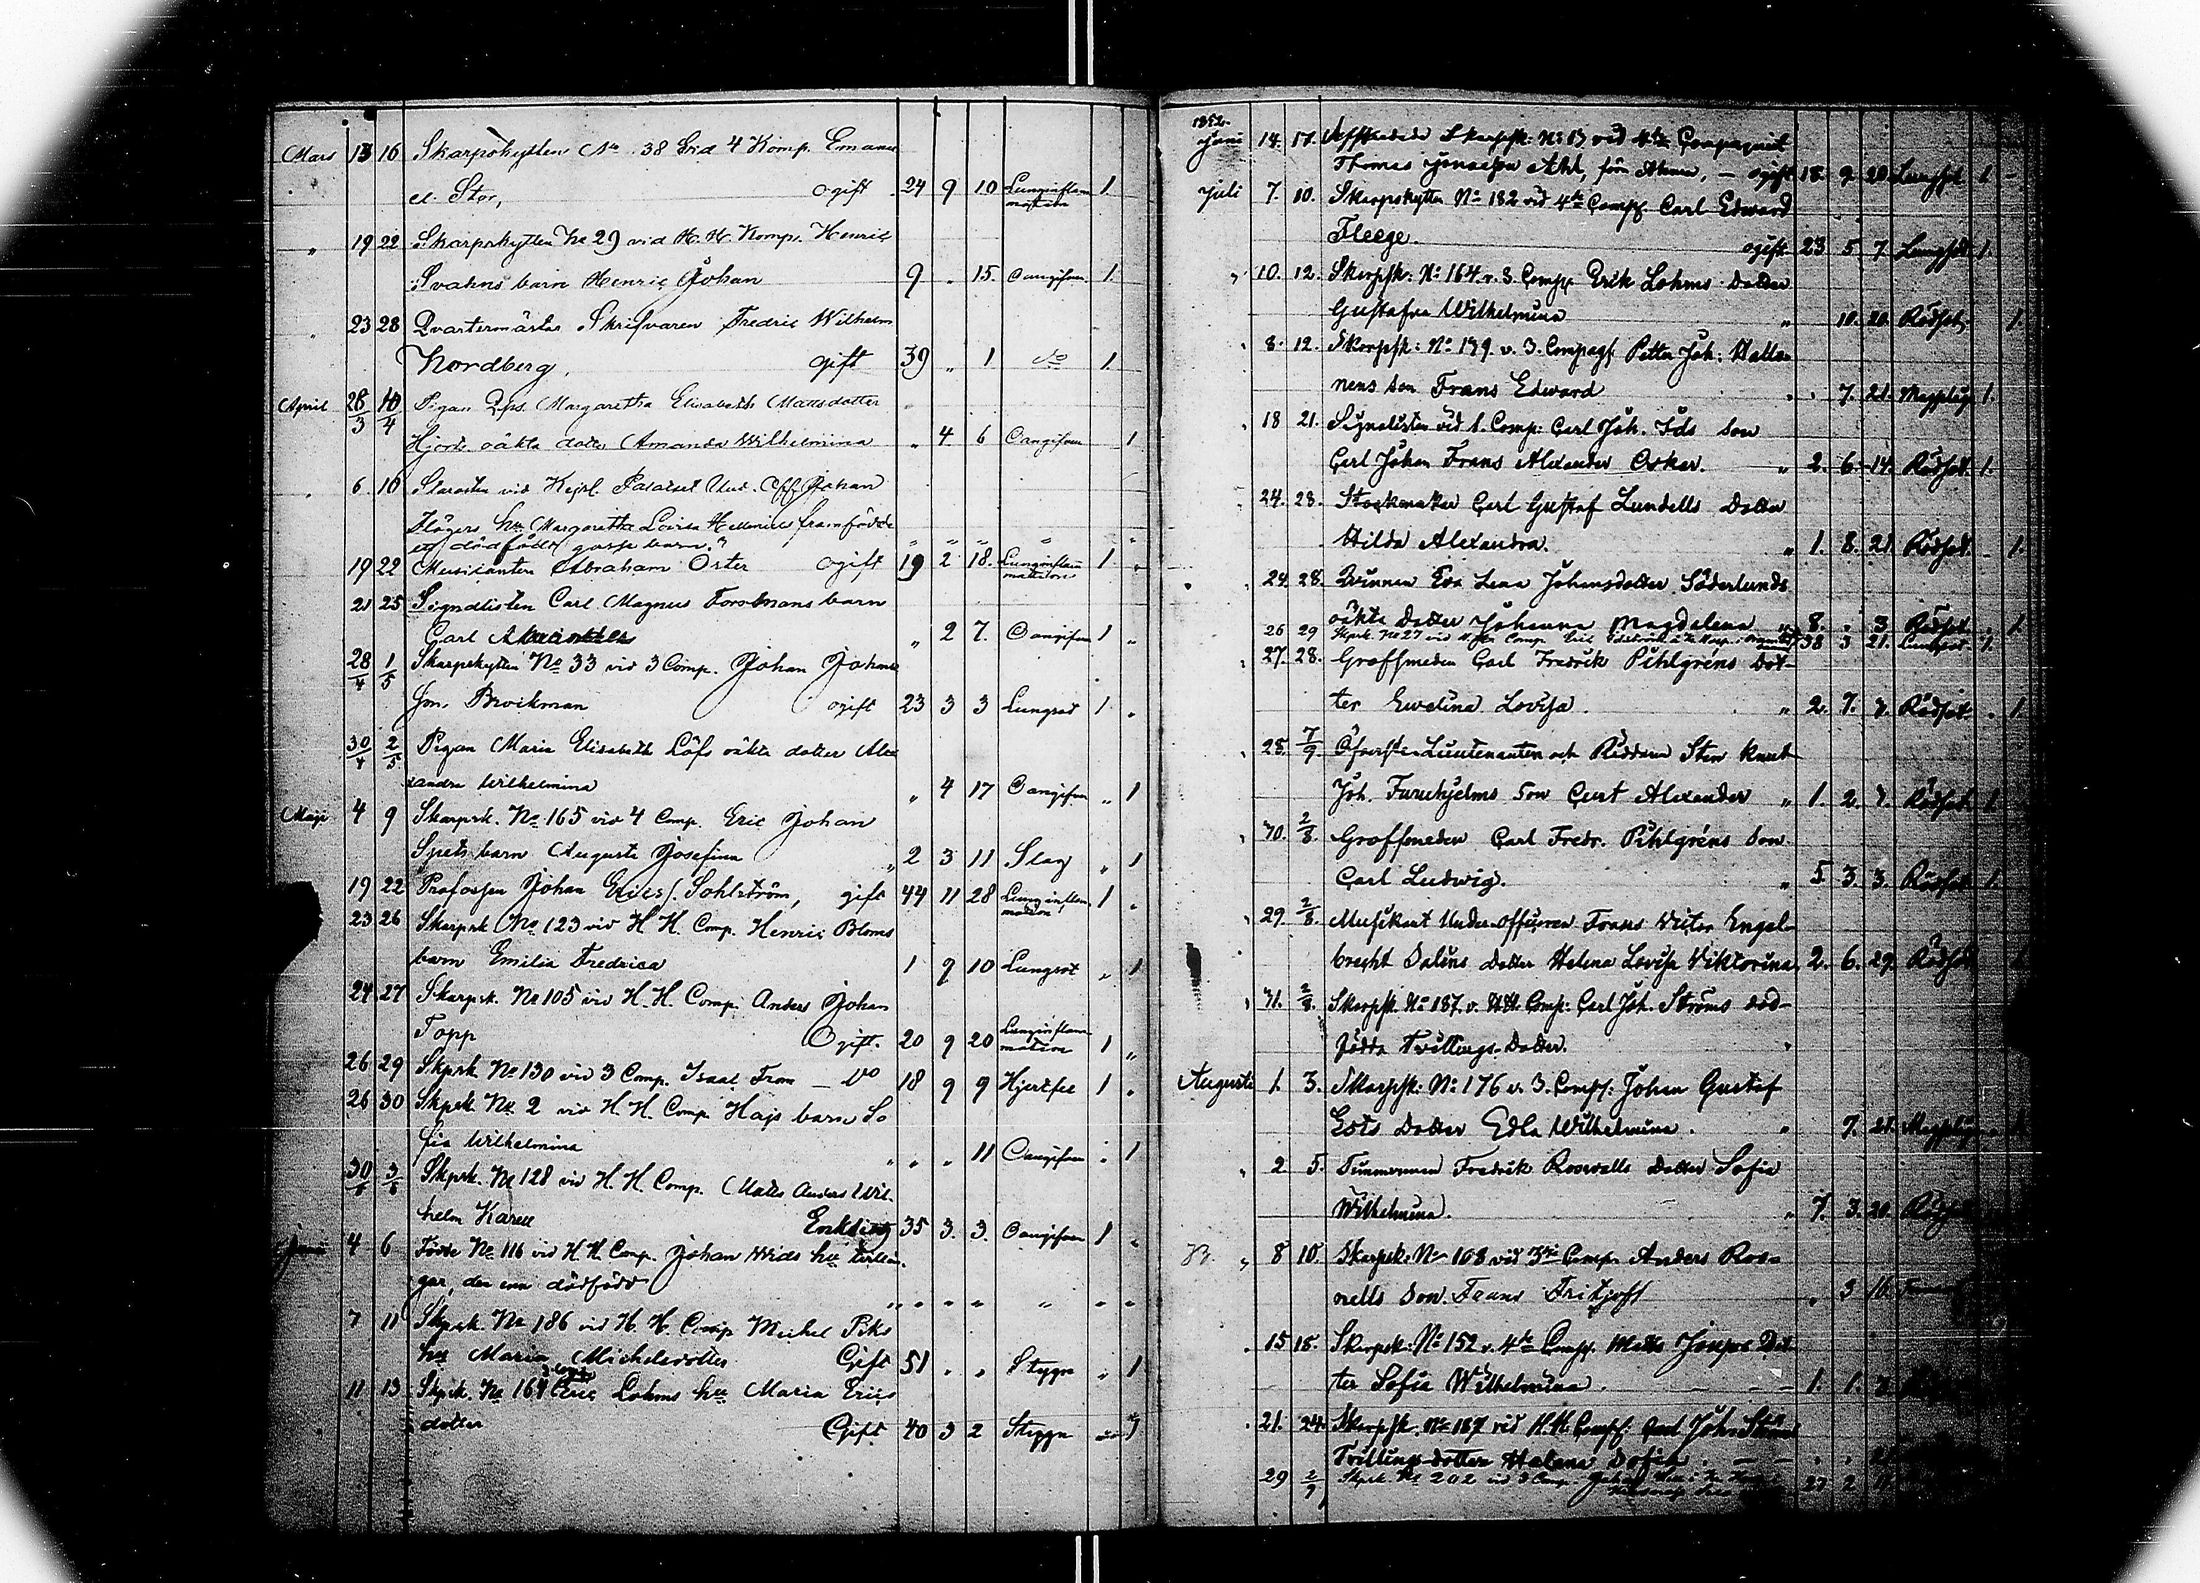 Mars 13 16 Skarpskytten No 38 vid 4 Komp. Emanu
el Stor, ogift 24 9 10 Lunginflam 1
mation
" 19 22 Skarpskytten No 29 vid H. H. Komp. Henric
Svahns barn Henric Johan 9 " 15 Oangifven 1
" 23 28 Qvartermästar Skrifvaren Fredric Wilhelm
Nordberg, gift 39 " 1 do 1
April 28/3 10/4 Pigan Margaretha Elisabeth Mattsdotter
Hjorts oäkta dotter Amanda Wilhelmina " 4 6 Oangifven 1
" 6 10 vid Kejsl. Palatset Johan
hu Margaretha Lovisa framfödde
ett dödfödt gosse barn " " " "
19 22 Musicanten Abraham Öster ogift 19 2 18 Lunginflam 1 "
mation
21 25 Signalisten Carl Magnus Forsmans barn
Carl " 2 7 Oangifven 1 "
28/4 1/5 Skarpskytten No 33 vid 3 Comp. Johan Johans
son Broikman ogift 23 3 3 Lungsot 1 "
30/4 2/5 Pigan Maria Elisabeth Löfs oäkta dotter Alex
andra Wilhelmina " 4 17 Oangifven " 1
Maji 4 9 Skarpsk. No 165 vid 4 Comp. Eric Johan
Spets barn Augusta Josefina " 2 3 11 Slag " 1
19 22 Profossen Johan Ericss. Sohlström, gift 44 11 28 Lunginflam 1 "
mation
23 26 Skarpsk No 123 vid H H. Comp. Henric Bloms
barn Emilia Fredrica 1 9 10 Lungsot " 1
24 27 Skarpsk. No 105 vid H. H. Comp. Anders Johan
Topp Ogift. 20 9 20 Lunginflam
mation 1 "
26 29 Skpsk No 130 vid 3 Comp. Isaac Trom — do 18 9 9 Hjertfel 1 "
26 30 Skpsk No 2 vid H H. Comp. Hajs barn So
fia Wilhelmina " " " 11 Oangifven " 1
30/5 3/6 Skpsk. No 128 vid H. H. Comp. Mats Anders Wil
helm Karell Enkling 35 3. 3. Oangifven 1 "
Juni 4 6 Födde No 116 vid H H Comp. Johan Wids hu tvillin
gar, den ena dödfödd " " " " " " "
7 11 Skpsk. No 186 vid H. H. Comp Michel Piks
hu Maria Michelsdotter Gift 51 " " Styggn " 1
11 13 Skpsk. No 164 Eric Lohms hu Maria Erics
dotter Gift 40 3 2 Styggn " 1
1852.
Juni 14. 17. Afskedade Skarpsk: No 13 vid 4de Compagniet
Thomas Jonasson Ahl, — ogift 18. 9. 20 Lungsot 1.
Juli 7. 10. Skarpskytten No 182 vid 4de Comp. Carl Edward
Fleege. ogift 23 5 7 Lungsot 1.
" 10. 12. Skarpsk: No 164 v. 3. Comp. Erik Lohms Dotter
Gustafva Wilhelmina " 10. 20. Rödsot 1.
" 8. 12. Skarpsk: No 139. v. 3. Compag. Petter Joh. Halla-
nens son Frans Edward " 7. 21. Magplåga 1.
" 18 21. Signalisten vid 1. Comp: Carl Joh. Ids Son
Carl Johan Frans Alexander Oskar. " 2. 6. 14. Rödsot. 1.
" 24. 28. Stockmaker Carl Gustaf Lundells Dotter
Hilda Alexandra. " 1. 8. 21. Rödsot. 1.
" 24. 28. Qvinnan Eva Lena Johansdotter Söderlunds
oäkta Dotter Johanna Magdalena " 8. . 3. Rödsot 1.
26 29 Skpsk. No 27 vid Comp. 38 3 21. Lungsot 1.
" 27. 28. Grofsmeden Carl Fredrik Pihlgréns Dot-
ter Ewelina Lovisa. " 2. 7. 7. Rödsot. 1.
" 28. 7/9 Öfverste-Lieutenanten och Riddaren Sten Knut
Joh. Furuhjelms Son Curt Alexander " 1. 2. 7. Rödsot. 1.
" 30. 2/8 Grofsmeden Carl Fredr. Pihlgréns Son
Carl Ludwig. " 5 3. 3. Rödsot 1.
" 29. 2/8 Musikant Under-officeren Frans Victor Engel-
brecht Saléns Dotter Helena Lovisa Viktorina 2. 6. 29. Rödsot 1
" 31. 2/8. Skarpsk. No 187. v. H.H. Comp: Carl Joh. Ströms död-
födda Tvillings-Dotter. "
Augusti 1. 3. Skarpsk: No 176 v. 3. Comp: Johan Gustaf
Ests Dotter Edla Wilhelmina. " 7. 21. Magplåga 1
" 2 5. Timmerman Fredrik Rosvalls Dotter Sofia
Wilhelmina. " 7. 3. 20. Rödsot
" 8 10. Skarpsk. No 108 vid 3die Comp. Anders Ros-
nells Son Frans Fritjoff " 3 16.
" 15 18. Skarpsk: No 152 v. 4de Comp. Matts Dot-
ter Sofia Wilhelmina. — — — 1. 1. 7.
" 21. 24. Skarpsk. No 187 vid H.H. Comp. Carl Joh. Ströms
Tvillings-dotter Helena Sofia. — —
29 2/9 Skpsk No 202 vid 3 Comp 27 2